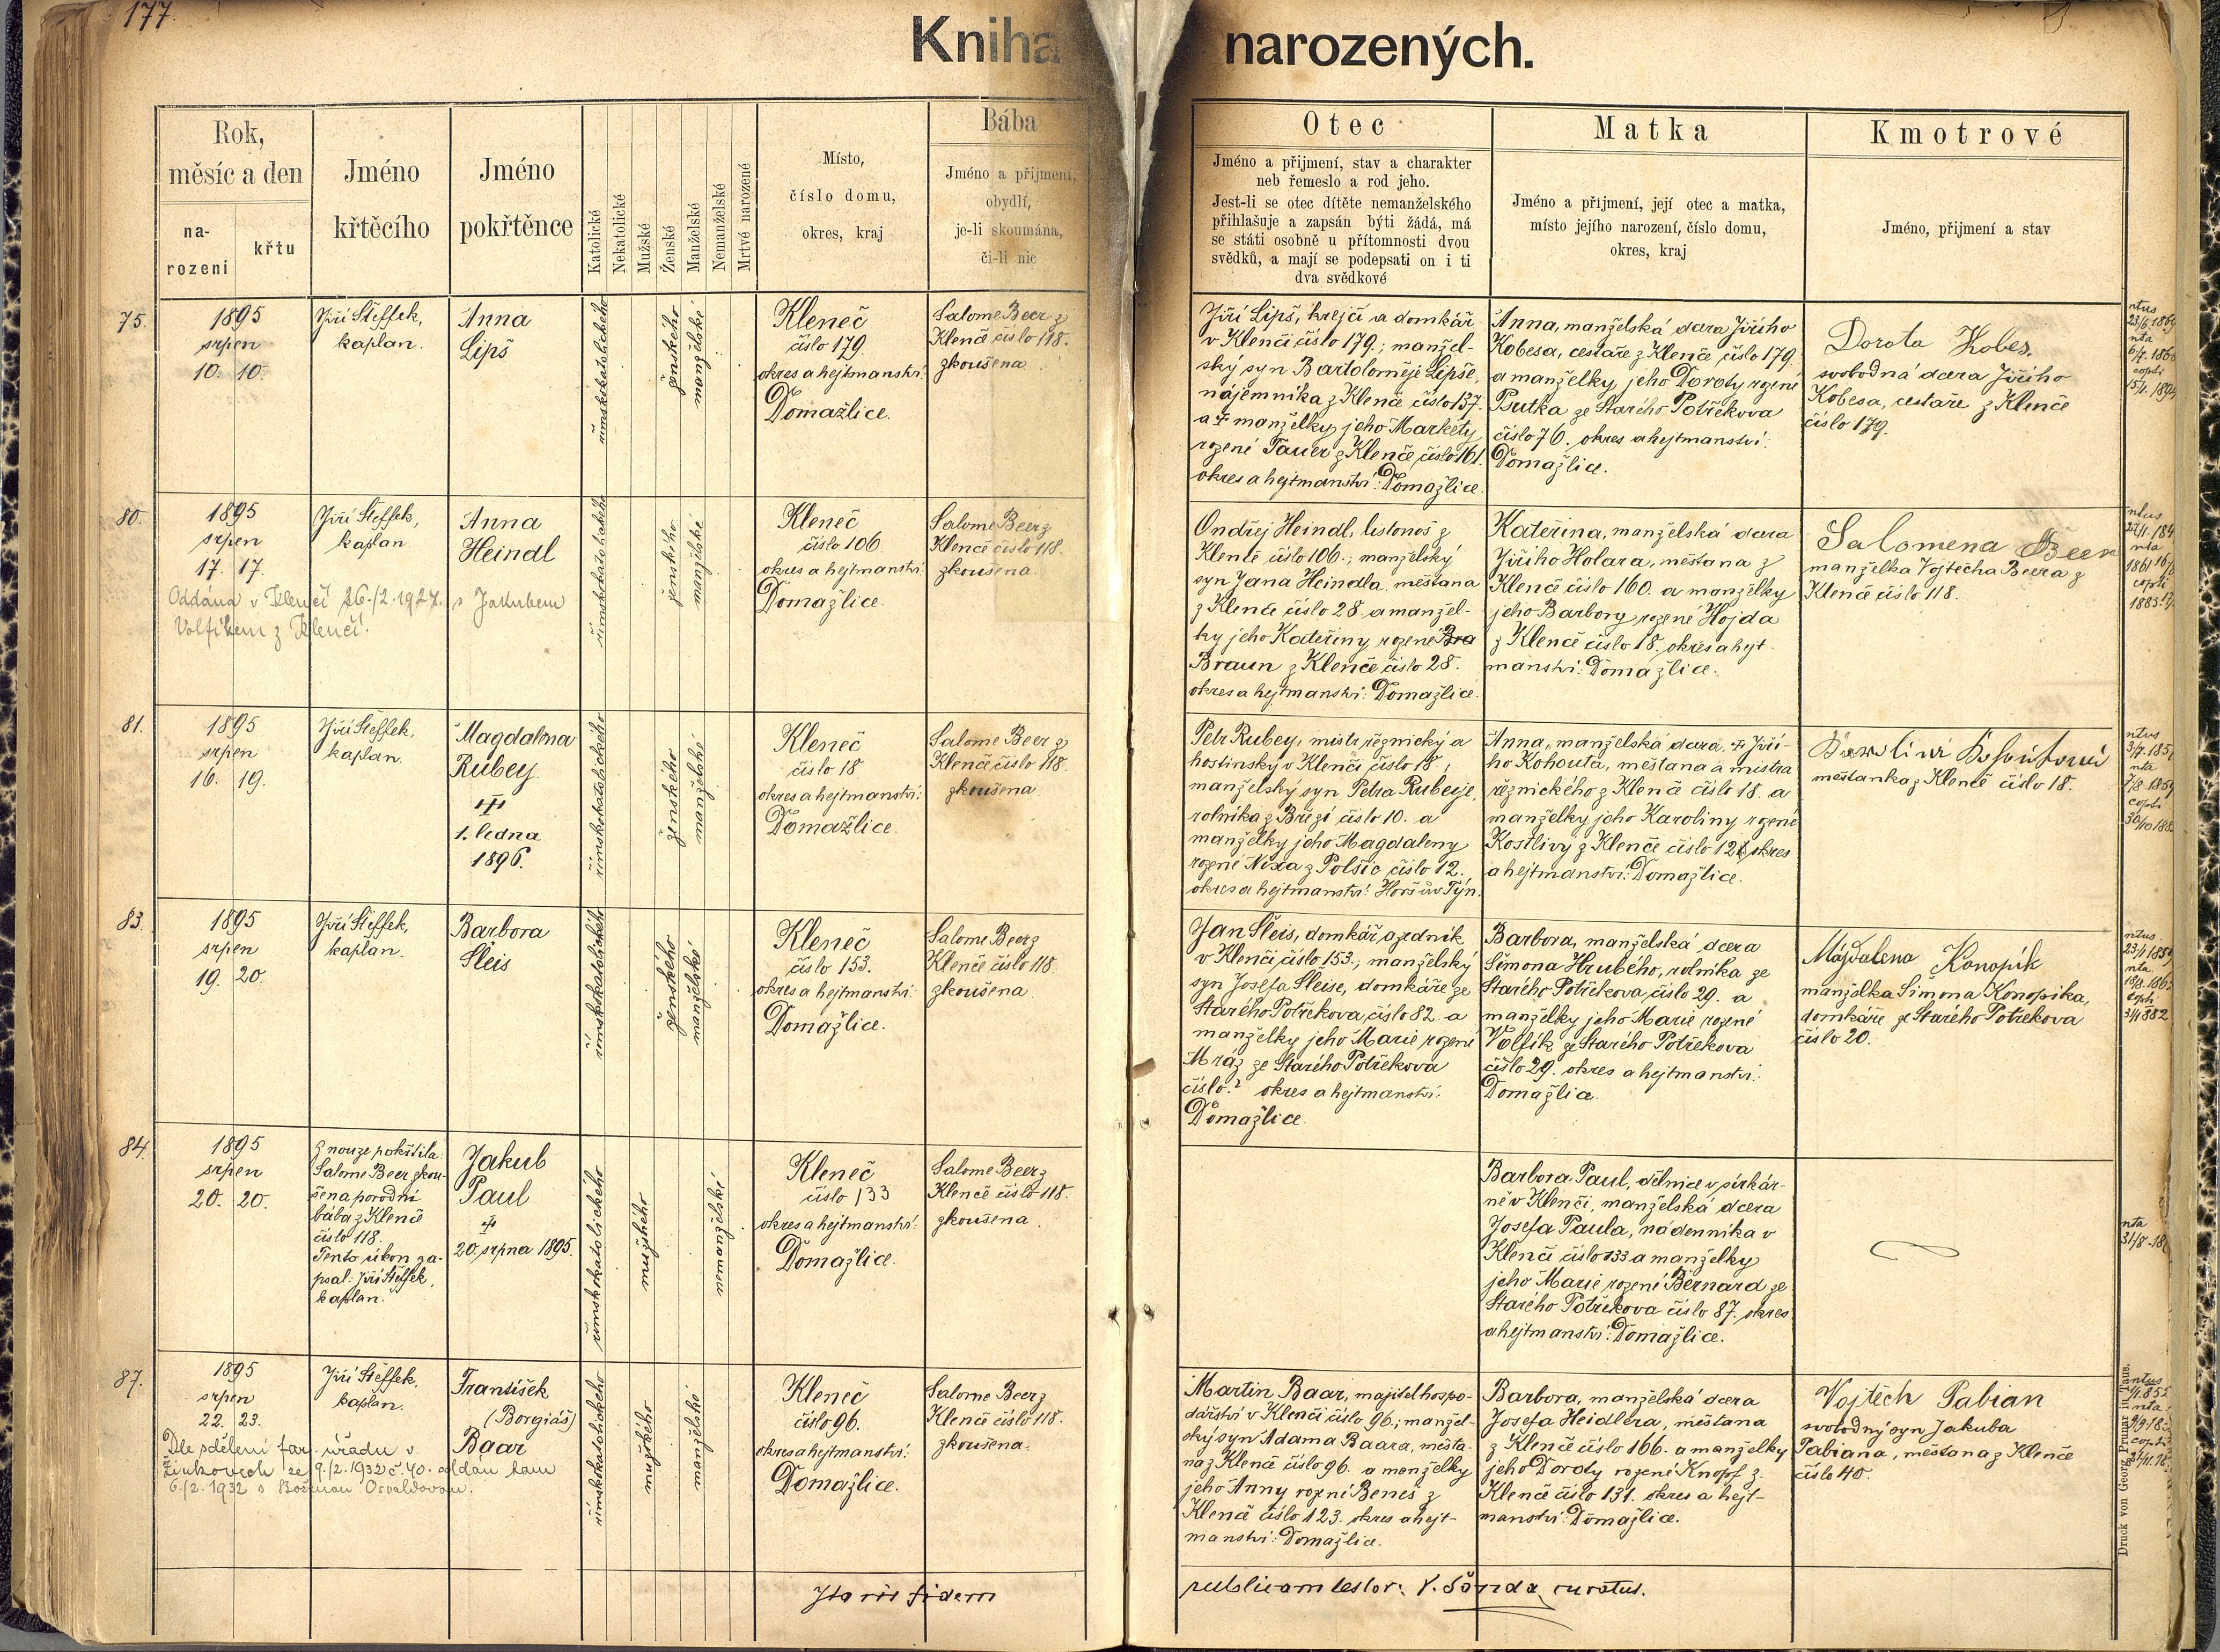 177.
Kniha narozených.
Rok,
měsíc a den
na-
rození
křtu
Jméno
křtěcího
Jméno
pokřtěnce
Katolické
Nekatolické
Mužské
Ženské
Manželské
Nemanželské
Mrtvé narozené
Místo,
číslo domu,
okres, kraj
Bába
Jméno a příjmení,
obydlí,
je-li skoumána,
či-li nic
Otec
Jméno a přijmení, stav a charakter
neb řemeslo a rod jeho.
Jest-li se otec dítěte nemanželského
přihlašuje a zapsán býti žádá, má
se státi osobně u přítomnosti dvou
svědků, a mají se podepsati on i ti
dva svědkové
Matka
Jméno a příjmení, její otec a matka,
místo jejího narození, číslo domu,
okres, kraj
Kmotrové
Jméno, přijmení a stav
75.
1895
srpen
10. 10.
Jiří Šteffek,
kaplan.
Anna
Lipš
římskokatolického
ženského
manželské
Kleneč
číslo 179.
okres a hejtmanství:
Domažlice.
Salome Beer z
Klenče číslo 118.
zkoušena
Jiří Lipš, krejčí a domkář
v Klenčí číslo 179.; manžel-
ský syn Bartoloměje Lipše,
nájemníka z Klenče číslo 137.
a † manželky jeho Markéty
rozené Tauer z Klenče, číslo 161.
okres a hejtmanství: Domažlice.
Anna, manželská dcera Jiřího
Kobesa, cestáře z Klenče, číslo 179
a manželky jeho Doroty rozené
Psutka ze Starého Postřekova
číslo 76. okres a hejtmanství:
Domažlice.
Dorota Kobes,
svobodná dcera Jiřího
Kobesa, cestáře z Klenče
číslo 179.
80.
1895
srpen
17. 17.
Oddána v Klenčí 26./2.1927. s Jakubem
Volfíkem z Klenčí.
Jiří Šteffek,
kaplan.
Anna
Heindl
římskokatolického
ženského
manželské
Kleneč
číslo 106.
okres a hejtmanství:
Domažlice.
Salome Beer z
Klenče číslo 118.
zkoušena.
Ondřej Heindl, listonoš z
Klenče číslo 106.; manželský
syn Jana Heindla, měšťana
z Klenče číslo 28. a manžel-
ky jeho Kateřiny rozené Bra
Braun z Klenče číslo 28.
okres a hejtmanství: Domažlice.
Kateřina, manželská dcera
Jiřího Holara, měšťana z
Klenče číslo 160. a manželky
jeho Barbory rozené Hojda
z Klenče číslo 18. okres a hejt-
manství: Domažlice.
Salomena Beer
manželka Vojtěcha Beera z
Klenče číslo 118.
81.
1895
srpen
16. 19.
Jiří Šteffek,
kaplan.
Magdalena
Rubey.
†
1. ledna
1896.
římskokatolického
ženského
manželské
Kleneč
číslo 18
okres a hejtmanství:
Domažlice.
Salome Beer z
Klenče číslo 118.
zkoušena.
Petr Rubey, mistr řeznický a
hostinský v Klenčí číslo 18.;
manželský syn Petra Rubeye,
rolníka z Březí číslo 10. a
manželky jeho Magdaleny
rozené Nixa z Polšic číslo 12.
okres a hejtmanství: Horšův Týn.
Anna, manželská dcera, † Jiří-
ho Kohouta, měšťana a mistra
řeznického z Klenče číslo 18. a
manželky jeho Karoliny rozené
Kostlivý z Klenče číslo 121. okres
a hejtmanství: Domažlice.
měšťanka z Klenče číslo 18.
83.
1895
srpen
19. 20.
Jiří Šteffek,
kaplan.
Barbora
Šleis
římskokatolického
ženského
manželské
Kleneč
číslo 153.
okres a hejtmanství:
Domažlice.
Salome Beer z
Klenče číslo 118.
zkoušena
Jan Šleis, domkář a zedník
v Klenčí, číslo 153.; manželský
syn Josefa Šleise, domkáře ze
Starého Postřekova, číslo 82. a
manželky jeho Marie rozené
Mráz ze Starého Postřekova
číslo? okres a hejtmanství:
Domažlice.
Barbora, manželská dcera
Šimona Hrubého, rolníka ze
Starého Postřekova, číslo 29. a
manželky jeho Marie rozené
Volfík ze Starého Postřekova
číslo 29. okres a hejtmanství:
Domažlice.
Magdalena Konopík
manželka Šimona Konopíka,
domkáře ze Starého Postřekova
číslo 20.
84.
1895
srpen
20. 20.
Z nouze pokřtila:
Salome Beer zkou-
šena porodní
bába z Klenče
číslo 118.
Tento úkon za-
psal: Jiří Šteffek,
kaplan.
Jakub
Paul
†
20. srpna 1895.
římskokatolického
mužského
nemanželské
Kleneč
číslo 133
okres a hejtmanství:
Domažlice.
Salome Beer z
Klenče číslo 118.
zkoušena.
Barbora Paul, dělnice v sirkár-
ně v Klenčí, manželská dcera
Josefa Paula, nádenníka v
Klenčí číslo 133 a manželky
jeho Marie rozené Bernard ze
Starého Postřekova číslo 87. okres
a hejtmanství: Domažlice.
87.
1895
srpen
22. 23.
Dle sdělení far. úřadu v
Žinkovech ze 9./2.1932 č. 40. oddán tam
6./2.1932 s Boženou Osvaldovou.
Jiří Šteffek,
kaplan.
František
(Borgiáš)
Baar
římskokatolického
mužského
manželské
Kleneč
číslo 96.
okres a hejtmanství:
Domažlice.
Salome Beer z
Klenče číslo 118.
zkoušena.
Martin Baar, majitel hospo-
dářství v Klenčí číslo 96.; manžel-
ský syn Adama Baara, měšťa-
na z Klenče číslo 96. a manželky
jeho Anny rozené Beneš z
Klenče číslo 123. okres a hejt-
manství: Domažlice.
Barbora, manželská dcera
Josefa Heidlera, měšťana
z Klenče číslo 166. a manželky
jeho Doroty rozené Knopf z
Klenče číslo 131. okres a hejt-
manství: Domažlice.
Vojtěch Pabian
svobodný syn Jakuba
Pabiana, měšťana z Klenče
číslo 40.
fidem
publicam testor: V. Šanda, curatus.
Druck von Georg Prunar in Taus.